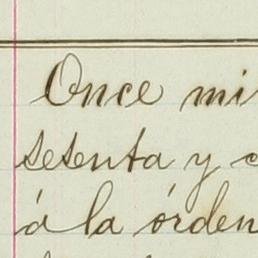 Once mi
sesenta y c
á la órden